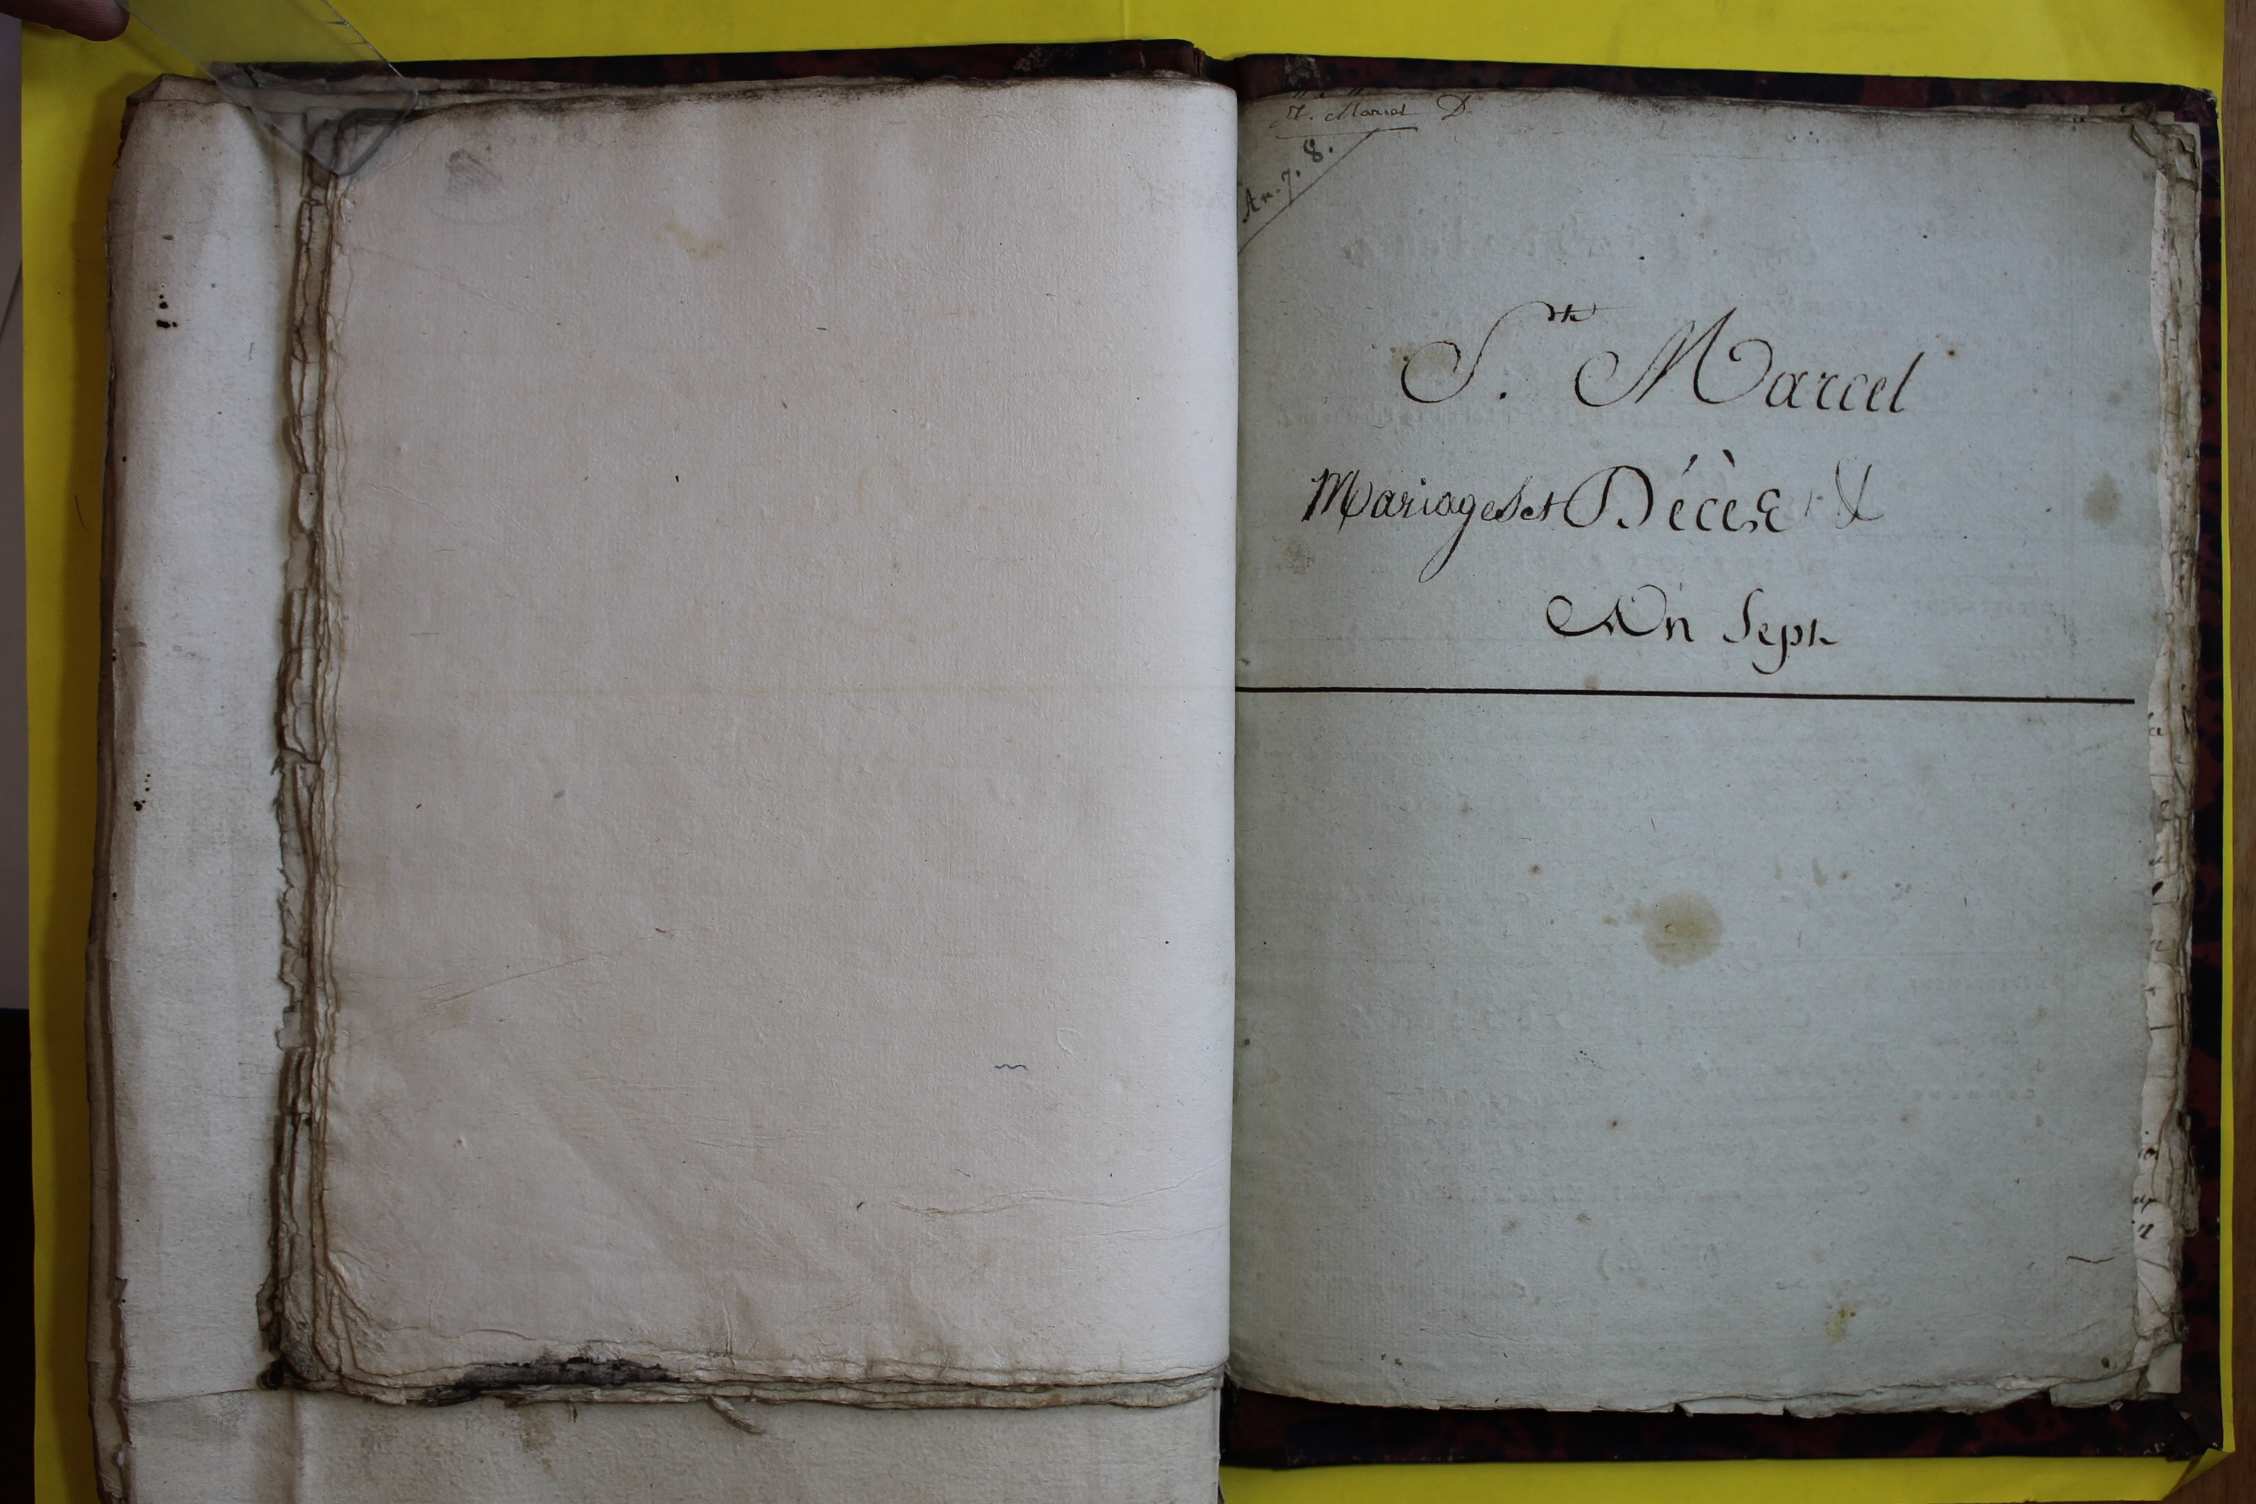 St. Marcel D.
An. 7. 8.
St. Marcel
Mariages et Décès
An Sept